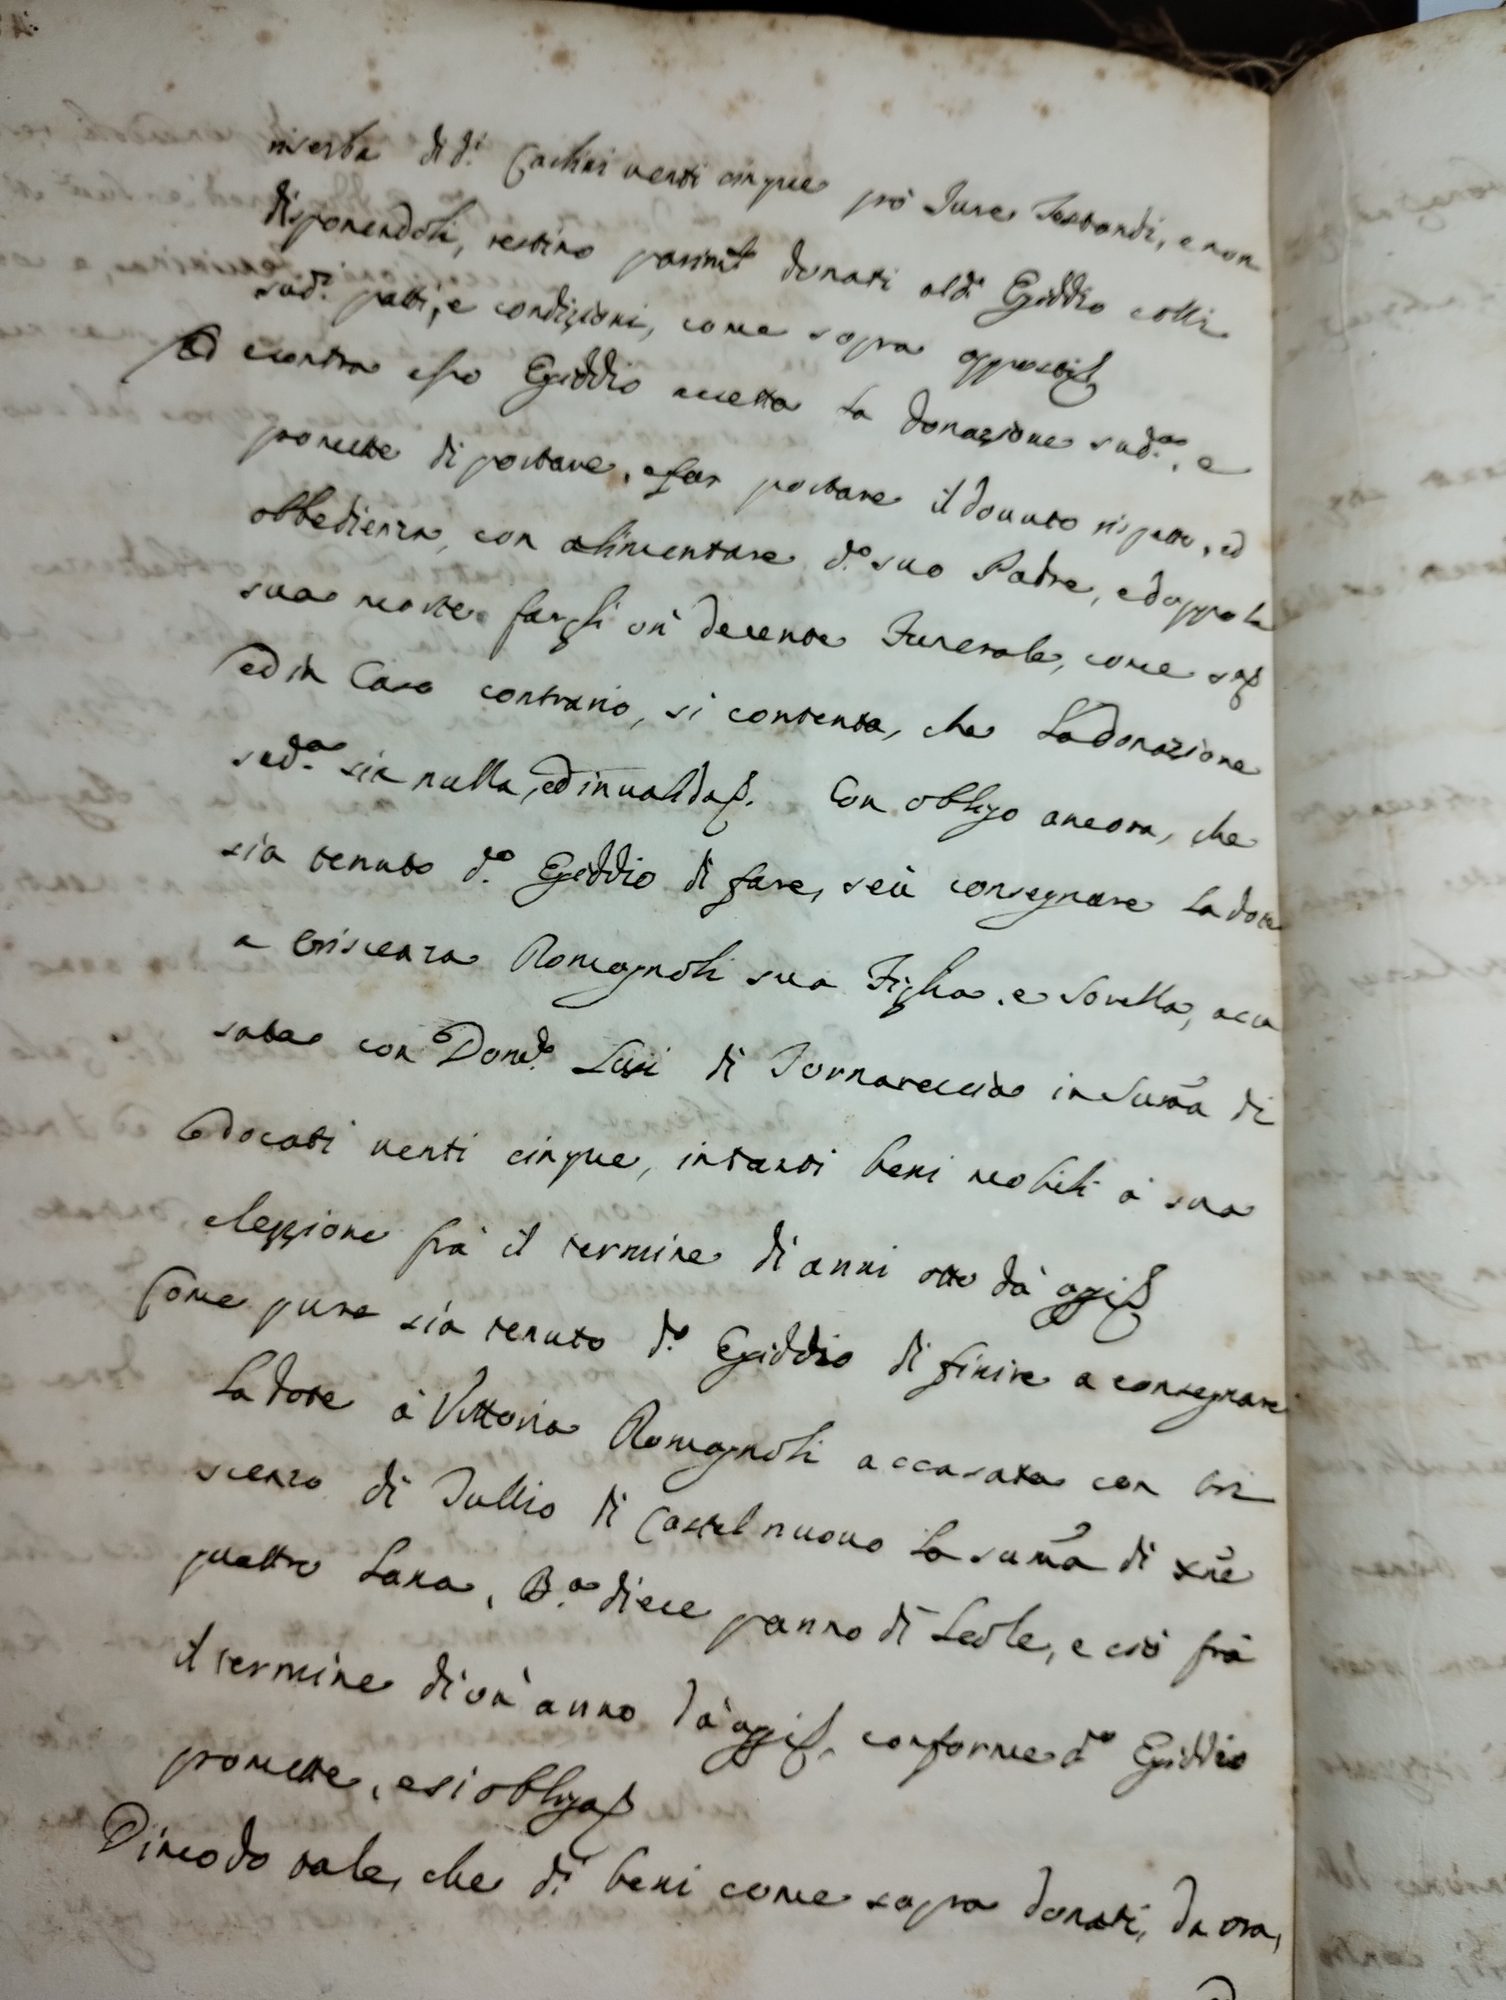 riserba di d.i Carlini venti cinque prò Jure Testandi, e non
disponendoli, restino parim.te donati al d.o Egiddio colli
sud.i patti, e condizioni, come sopra
Ed econtra esso Egiddio accetta la donazione sud.a, e
promette di portare, e far portare il dovuto rispetto, ed
obbedienza, con alimentare d.o suo Padre, e doppo la
sua morte fargli un' decente Funerale, come
ed in Caso contrario, si contenta, che la donazione
sud.a sia nulla, ed invalida. Con obligo ancora, che
sia tenuto d.o Egiddio di fare, seù consegnare la dote
a Criscenza Romagnoli sua Figlia, e Sorella, acca
sata con Dom.o di Tornareccio in Suma di
Docati venti cinque, in tanti beni mobili à sua
elezzione frà il termine di anni otto dà oggi
Come pure sia tenuto d.o Egiddio di finire a consegnare
la dote à Vittoria Romagnoli accasata con Cri
scenzo di Tullio di Castelnuovo la suma di
quattro Lana, B.a diece panno di, e ciò frà
il termine di un' anno dà oggi, conforme d.o Egiddio
promette, e si obliga
Dimodo tale, che d.i beni come sopra donati, da ora,